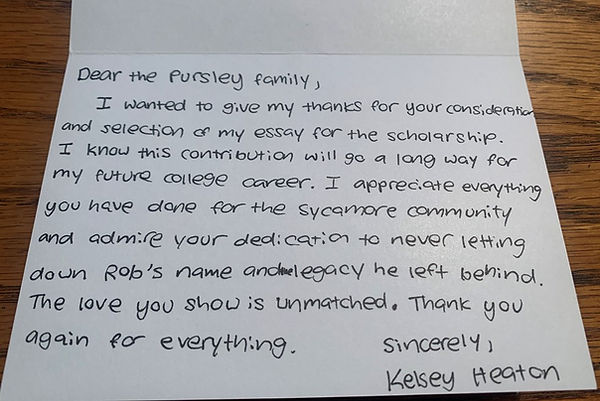 Dear the Pursley family,
I wanted to give my thanks for your consideration
and selection of my essay for the scholarship.
I know this contribution will go a long way for
my future college career. I appreciate everything
you have done for the Sycamore community
and admire your dedication to never letting
down Rob's name and legacy he left behind.
The love you show is unmatched. Thank you
again for everything.
Sincerely,
Kelsey Heaton